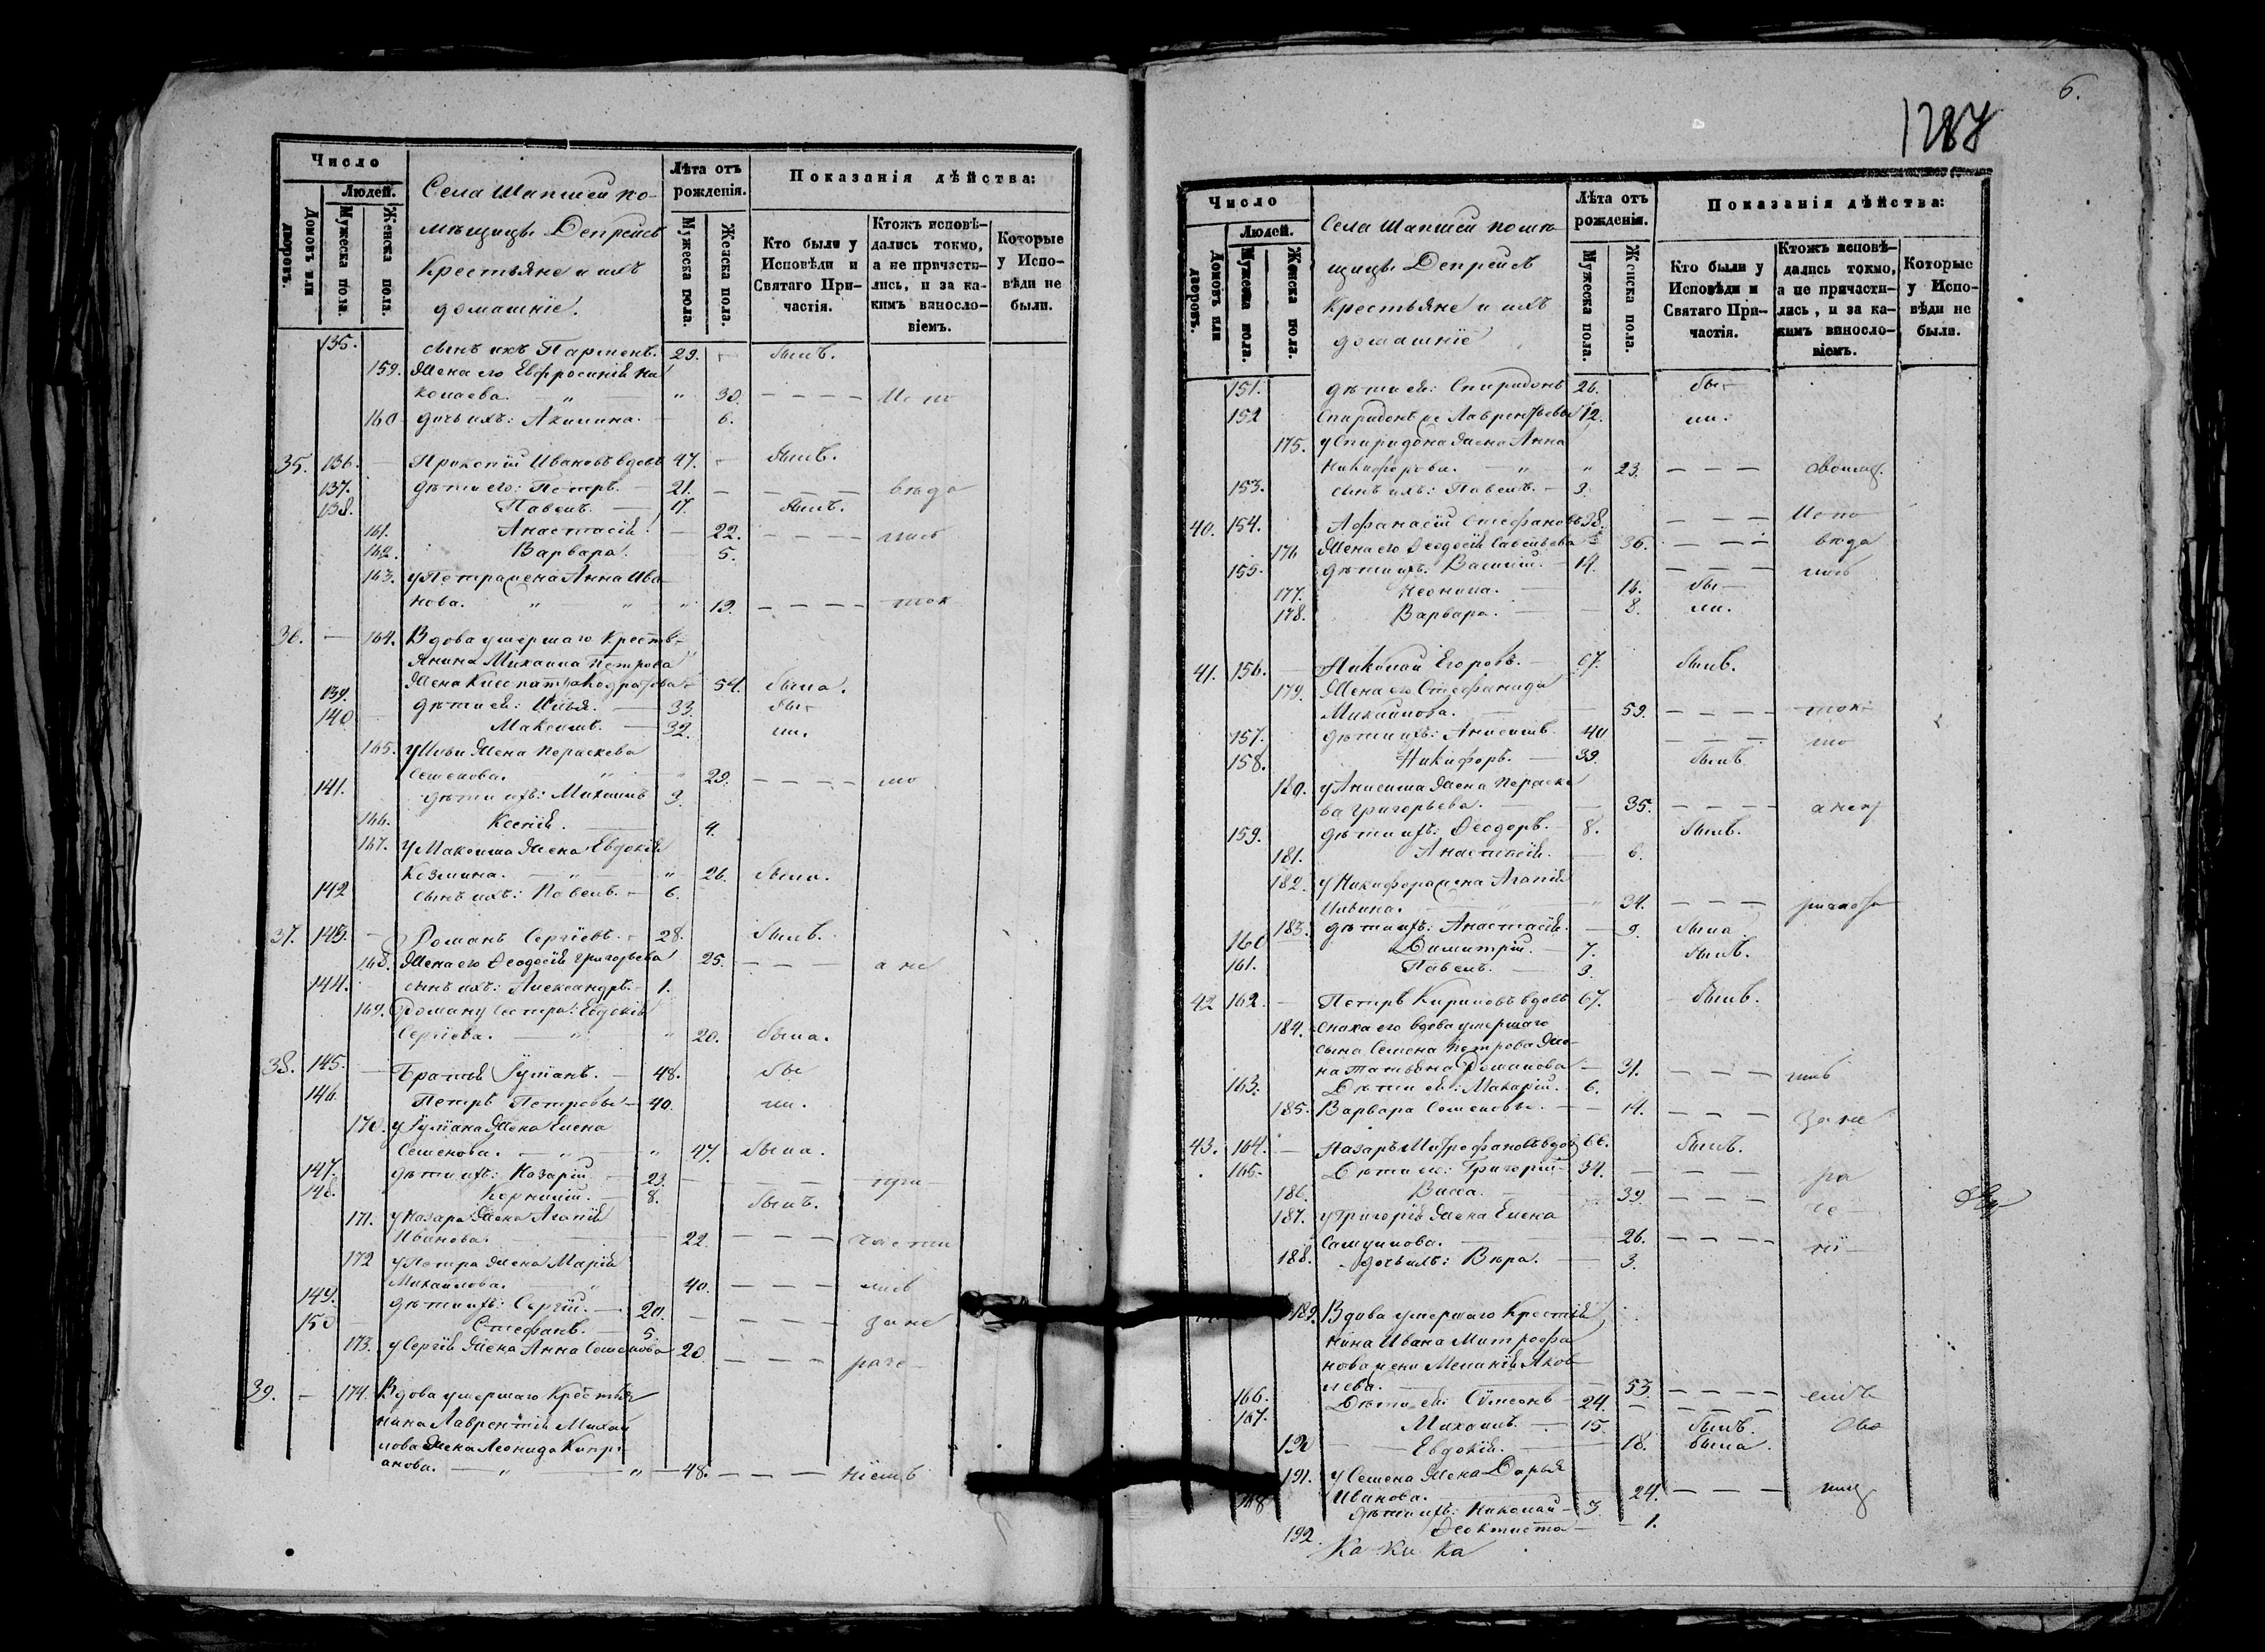 Число
Людей.
Домовъ или дворовъ.
Мужеска пола.
Женска пола.
Села Шапшей по-
мѣщицы Депрейсъ
Крестьяне и ихъ
домашніе.
Лѣта отъ рожденія.
Мужеска пола.
Женска пола.
Показанія дѣйства:
Кто были у Исповѣди и Святаго При-частія.
Ктожъ исповѣ-дались токмо, а не причасти-лись, и за ка-кимъ винослo-віемъ.
Которые у Испо-вѣди не были.
135. сынъ ихъ Парменъ. 29. былъ.
159. Жена его Евфросинія Ни
колаева. " " 30. Испо
160 дочь ихъ: Акилина. 6.
35. 136. Прокопій Ивановъ вдовъ 47. былъ.
137. дѣти его: Петръ. 21. вѣда
138. Павелъ. 17. былъ.
161. Анастасія 22. лись
162. Варвара. 5.
163. у Петра жена Анна Ива
нова. " " " 19. ток
36. 164. Вдова умершаго Кресть-
янина Михаила Петрова
жена Клеопатра 54. была.
139. дѣти ея: Илья. 33. бы-
140 Максимъ. 32. ли.
165. у Ильи жена Параскева
Семенова. " 29. мо
141. дѣти ихъ: Михаилъ 3.
166. Ксенія. 4.
167. У Максима жена Евдокія
Козмина. " " 26. была.
142 сынъ ихъ: Павелъ. 6.
37. 143. Романъ Сергіевъ. 28. былъ.
168. Жена его Ѳеодосія Григорьева 25. а не
144. сынъ ихъ: Александръ. 1.
169. Роману сестра: Евдокія
Сергіева. " " 20. была.
38. 145. Братья Іуліанъ. 48. бы
146 Петръ Петровы 40. ли.
170. у Іуліана жена Елена
Семенова. " " 47. была.
147. дѣти ихъ: Назарій 23. при
148. Корнилій. 8. былъ.
171. у Назара жена Агапія
Иванова. 22. части
172 у Петра жена Марія
Михайлова. 40. лись
149. дѣти ихъ: Сергій. 20. за не
150 Стефанъ. 5.
173. у Сергія жена Анна Семенова 20 раче
39. 174. Вдова умершаго Крестья
нина Лаврентія Михай
лова жена Леонида Кипрі-
анова. " " 48. ніемъ
6.
1287
Число
Людей.
Домовъ или дворовъ.
Мужеска пола.
Женска пола.
Села Шапшей помѣ
щицы Депрейсъ
Крестьяне и ихъ
домашніе
Лѣта отъ рожденія.
Мужеска пола.
Женска пола.
Показанія дѣйства:
Кто были у Исповѣди и Святаго При-частія.
Ктожъ исповѣ-дались токмо, а не причасти-лись, и за ка-кимъ винослo-віемъ.
Которые у Испо-вѣди не были.
151. дѣти ея: Спиридонъ 26. бы-
152 Спиридонъ Лаврентьевы 12. ли.
175. у Спиридона жена Анна
Никифорова. " " 23.
153. сынъ ихъ: Павелъ. 3.
40. 154. Афанасій Стефановъ 38. Испо
176 Жена его Ѳеодосія Савельева 36. вѣда
155. дѣти ихъ: Василій. 14. лись
177. Неонила. 16. бы
178. Варвара. 8. ли.
41. 156. Николай Егоровъ. 67. былъ.
179. Жена его Стефанида
Михайлова. 59. ток
157. дѣти ихъ: Анисимъ. 40 мо
158. Никифоръ. 39. былъ
180. у Анисима жена Параске
ва Григорьева. 35.
159. дѣти ихъ: Ѳеодоръ. 8. былъ.
181. Анастасія. 6.
182. у Никифора жена Агапія
Ильина. " 34.
183. дѣти ихъ: Анастасія. 9. была
160 Димитрій. 7. былъ.
161. Павелъ. 3.
42 162. Петръ Кириловъ вдовъ 67. былъ.
184. Сноха его вдова умершаго
сына Семена Петрова же-
на Татьяна Романова 31. лись
163. Дѣти ея: Макарій. 6.
185. Варвара Семеновы. 14. за не
43. 164. Назаръ Митрофановъ вдов 66. былъ.
165. Дѣти его: Григорій 34. ра
186. Васса. 39. че
187. у Григорія жена Елена
Самуилова. 26. ні
188. дочь ихъ: Вѣра. 3.
189. Вдова умершаго Крестья
нина Ивана Митрофа
нова жена Меланія Яков
лева. 53. емъ
166. Дѣти ея: Симеонъ 24.
167. Михаилъ. 15. былъ.
190 Евдокія. 18. была.
191. у Семена жена Дарья
Иванова. 24.
168 дѣти ихъ: Николай 3
192. Ѳеоктиста 1.